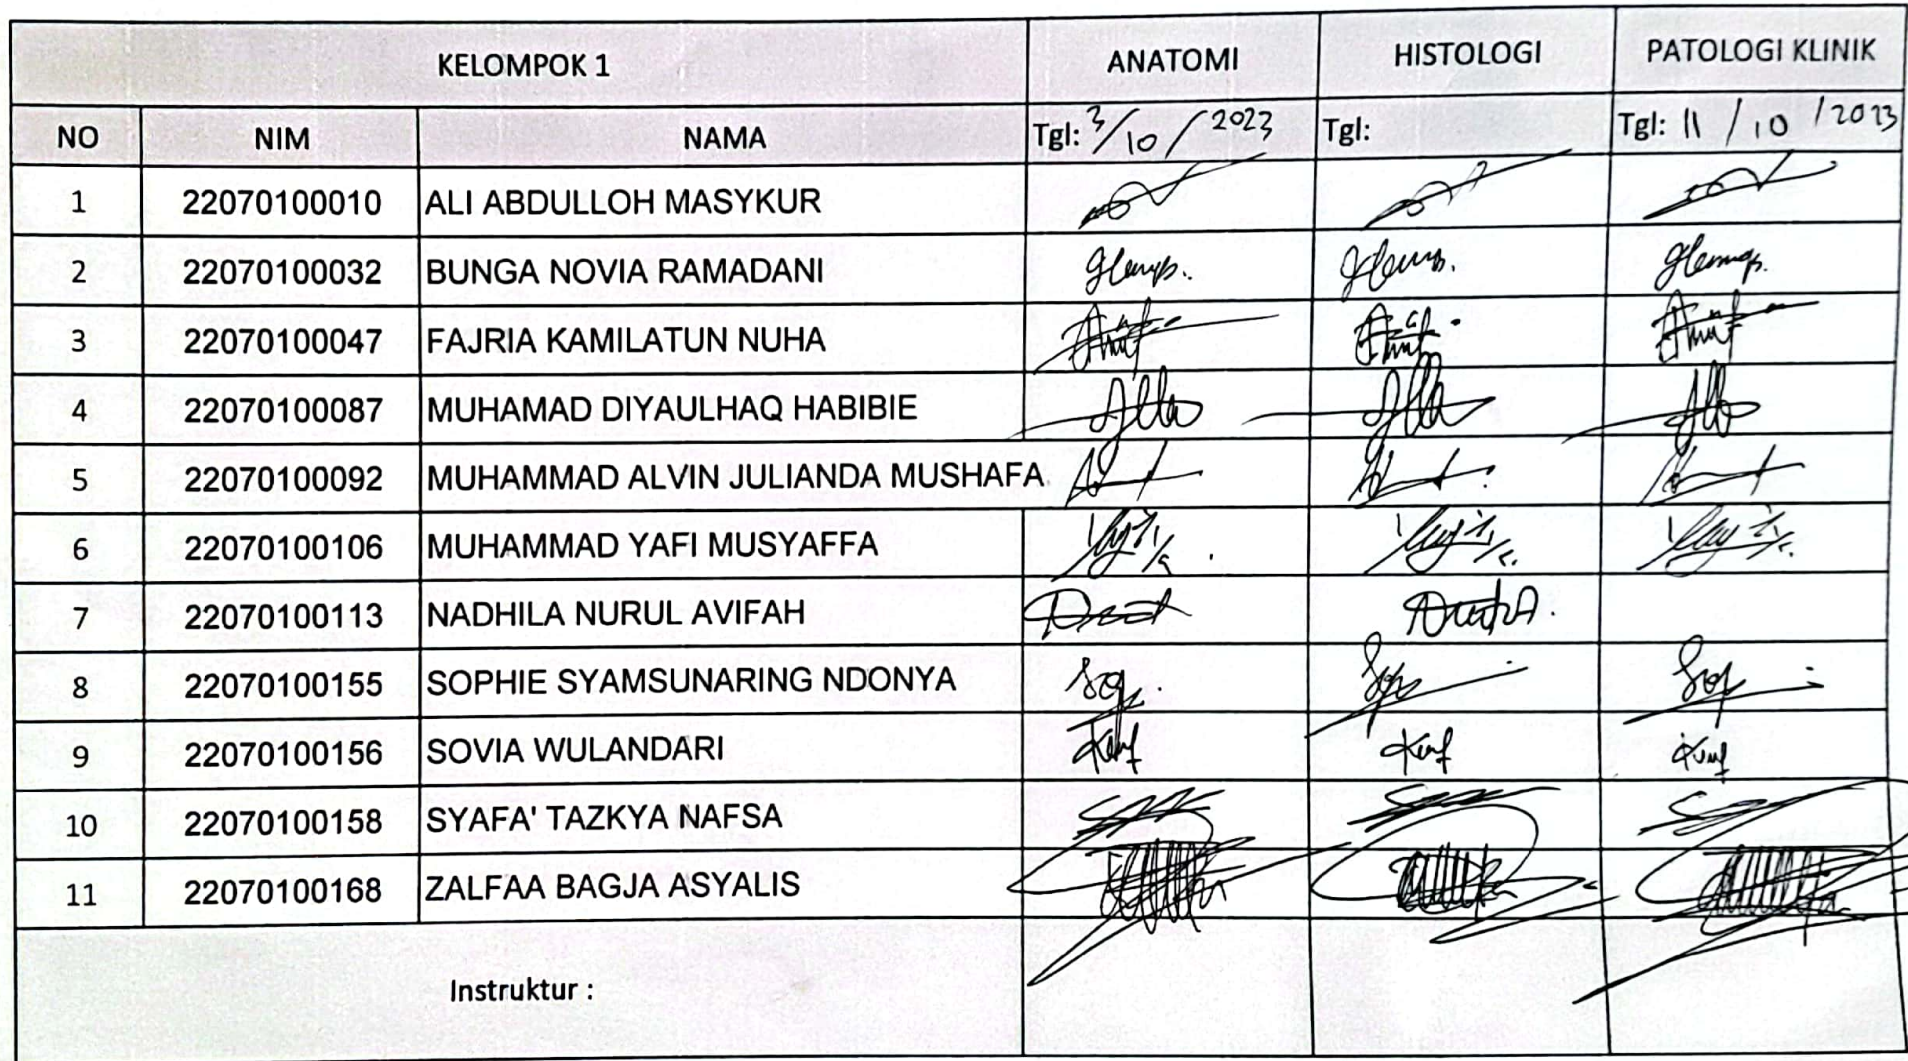 KELOMPOK 1 ANATOMI HISTOLOGI PATOLOGI KLINIK
NO NIM NAMA Tgl: 3/10/2023 Tgl: Tgl: 11/10/2023
1 22070100010 ALI ABDULLOH MASYKUR
2 22070100032 BUNGA NOVIA RAMADANI
3 22070100047 FAJRIA KAMILATUN NUHA
4 22070100087 MUHAMAD DIYAULHAQ HABIBIE
5 22070100092 MUHAMMAD ALVIN JULIANDA MUSHAFA
6 22070100106 MUHAMMAD YAFI MUSYAFFA
7 22070100113 NADHILA NURUL AVIFAH
8 22070100155 SOPHIE SYAMSUNARING NDONYA
9 22070100156 SOVIA WULANDARI
10 22070100158 SYAFA' TAZKYA NAFSA
11 22070100168 ZALFAA BAGJA ASYALIS
Instruktur :